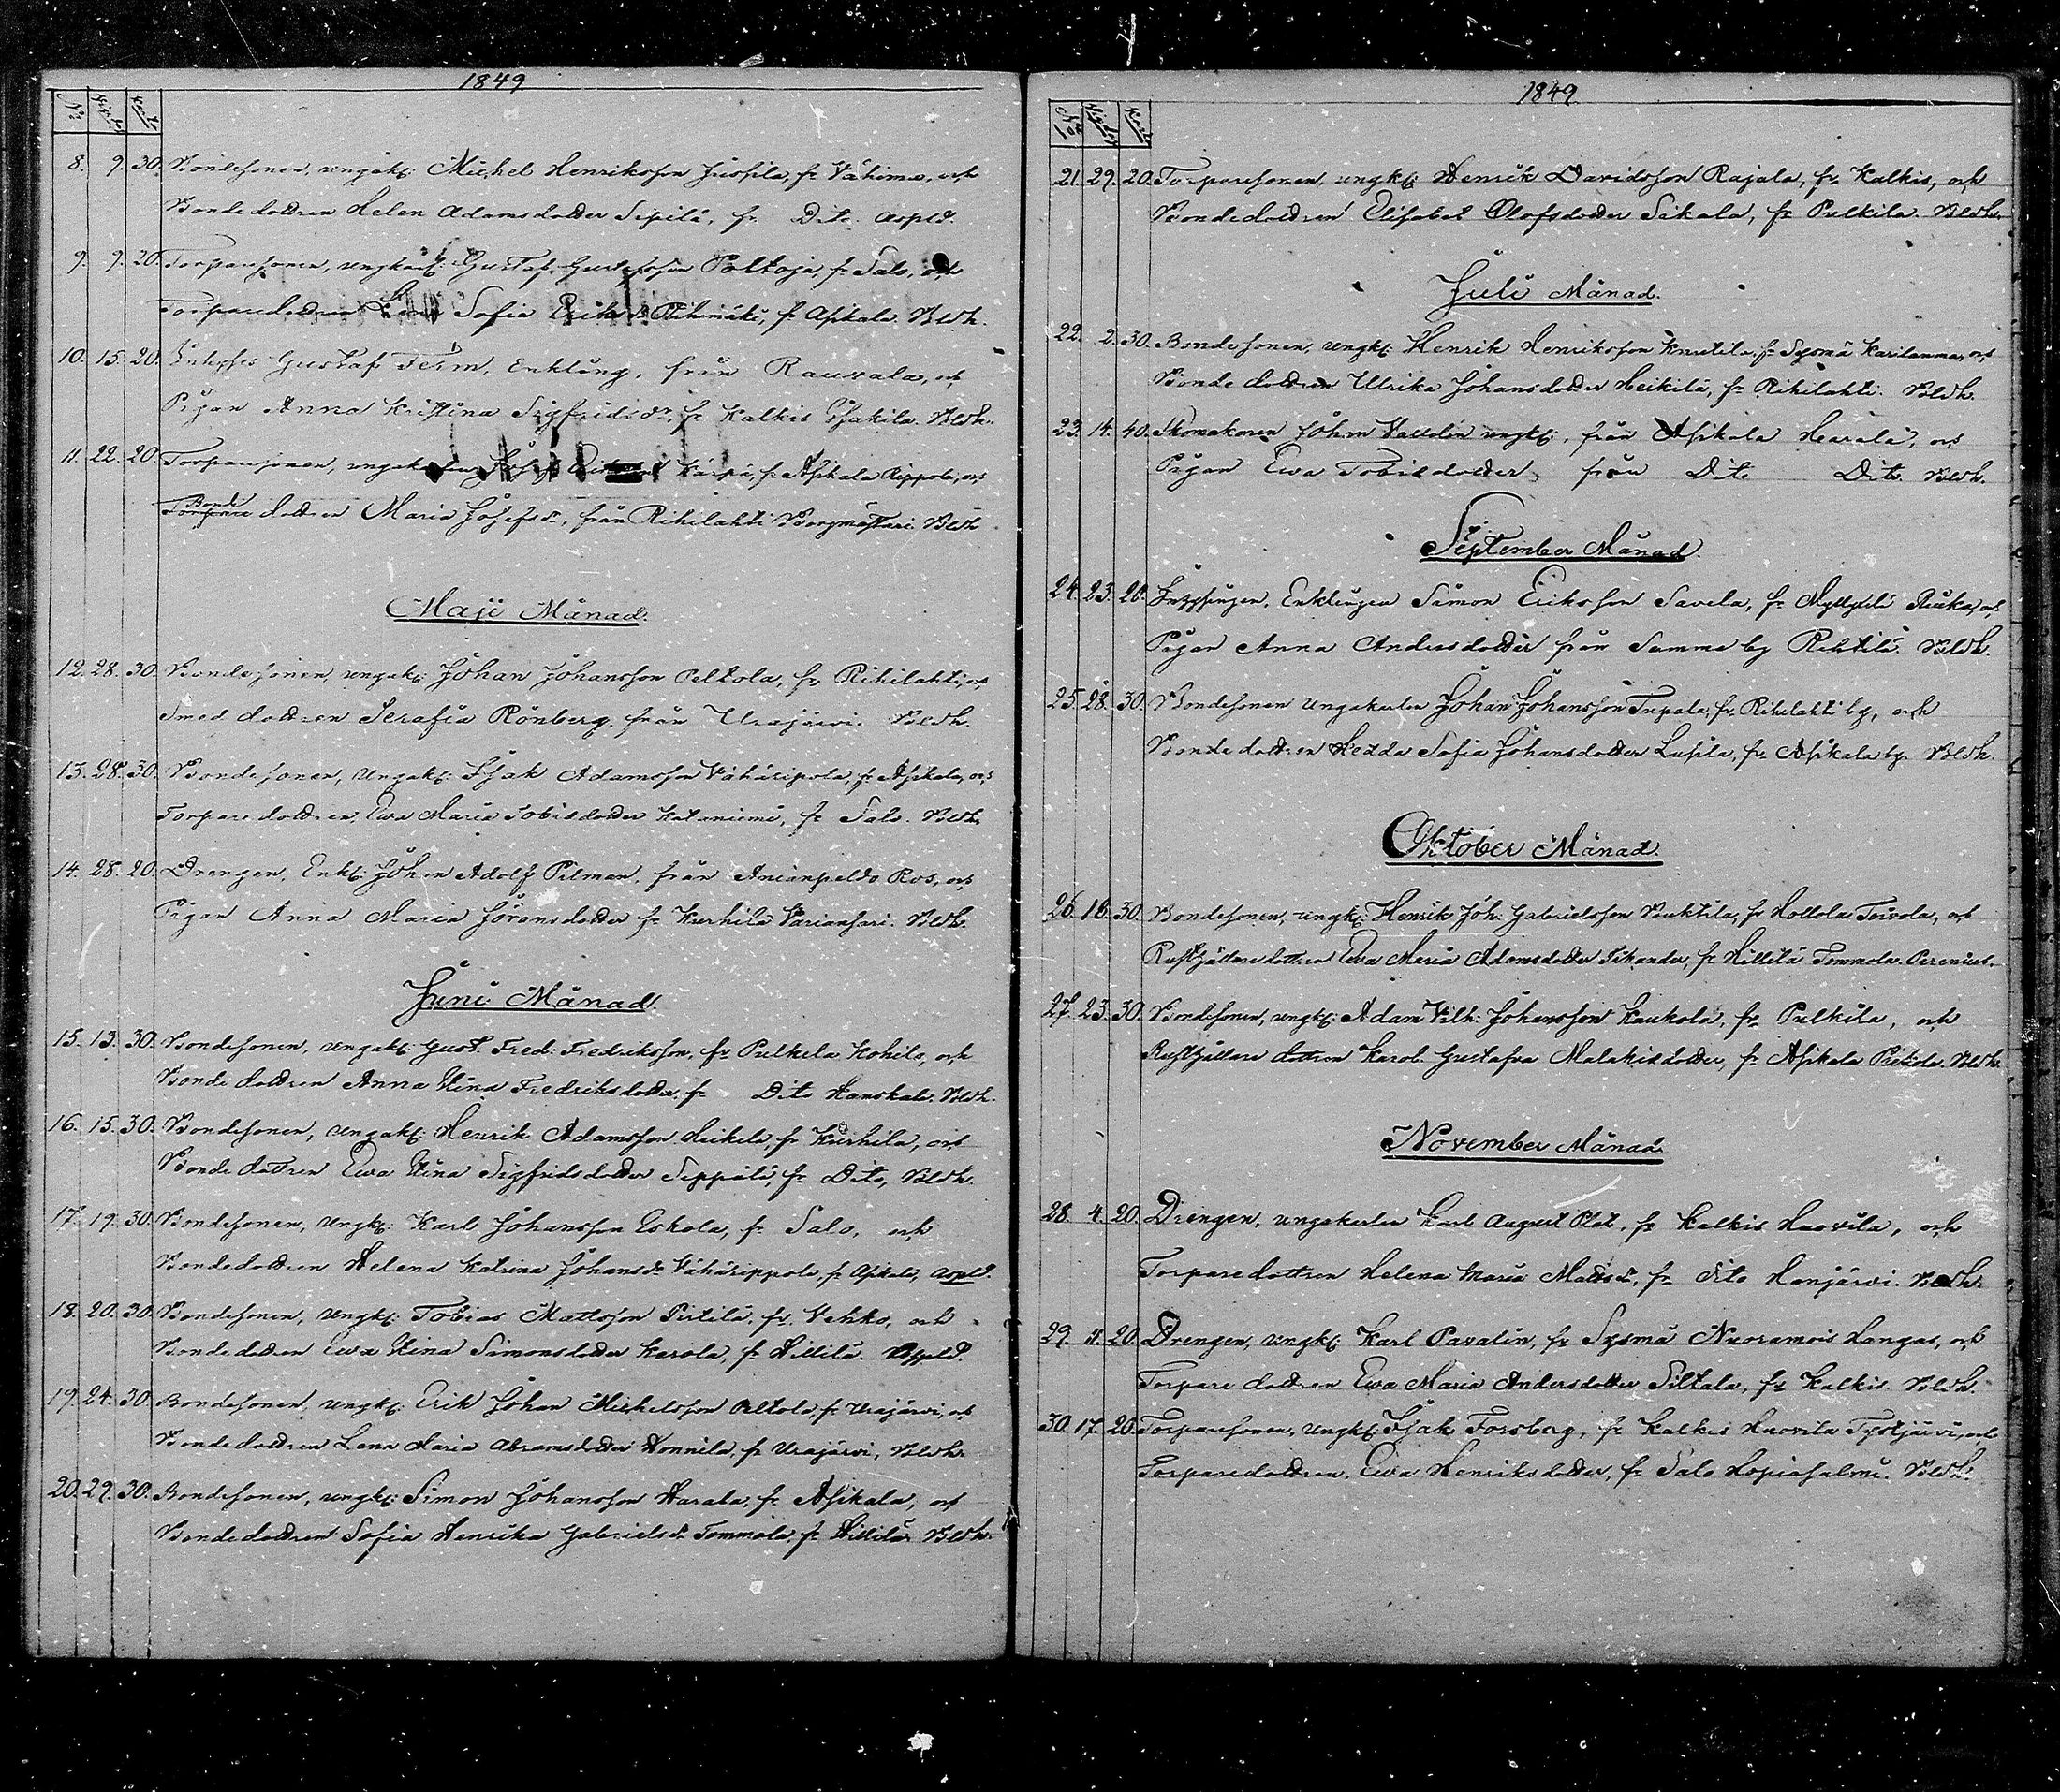 1849
No Vigde
8. 9. 30. Bondesonen, ungk: Michel Henriksson Jussila, fr Vähimä, och
Bondedottren Helen Adamsdotter Sipilä, fr Dito. Aspld.
9. 9. 20. Torparesonen, ungkarl: Gustaf Gustafsson Poltoja, fr Salo, och
Torparedottren Sofia Eriksdr Riihimäki, fr Asikala. Bldh.
10. 15. 20. Gustaf Term, Enkling, från Rauvala, och
Pigan Anna Kristina Sigfridsdr, fr Kalkis Isakila. Bldh.
11. 22. 20. Torparesonen, Kärpä, fr Asikala Rippola, och
Bonde dottren Maria Josefsdr, från Rihilahti Borgmästari Bldh
Maji Månad.
12. 28. 30. Bondesonen, ungk: Johan Johansson Peltola, fr Rihilahti, och
Smed dottren Serafia Rönberg, från Urajärvi. Bldh.
13. 28. 30. Bondesonen, Ungk: Isak Adamsson Vähäripola, fr Asikala, och
Torpare dottren, Eva Maria Tobisdotter Kataniemi, fr Salo. Bldh.
14. 28. 20. Drengen, Enkl: Johan Adolf Pilman, från Anianpeldo Bos, och
Pigan Anna Maria Göransdotter fr Kurhila Variansari. Bldh.
Juni Månad.
15. 13. 30. Bondesonen, ungk: Gust. Fred: Fredriksson, fr Pulkila Kohila, och
Bonde dottren Anna Stina Fredriksdotter, fr Dito Hanskala. Bldh.
16. 15. 30. Bondesonen, ungk: Henrik Adamsson Heikilä, fr Kurhila, och
Bonde dottren Eva Stina Sigfridsdotter Seppälä, fr Dito, Bldh.
17. 19. 30. Bondesonen, Ungk: Karl Johansson Eskola, fr Salo, och
Bondedottren Helena Katrina Johansdr Vähärippola, fr Asikala, Aspld.
18. 20. 30. Bondesonen, Ungk: Tobias Mattsson Pirtilä, fr. Vehko, och
Bondedottren Eva Stina Simonsdotter Kerola, fr Hillilä. Aspld.
19. 24. 30. Bondesonen, ungk: Erik Johan Michelsson Peltola, fr Urajärvi, och
Bonde dottren Lena Maria Abramsdotter Honnila, fr Urajärvi, Bldh.
20. 29. 30. Bondesonen, ungk: Simon Johansson Harala, fr Asikala, och
Bondedottren Sofia Henrika Gabrielsdr Tommola, fr Hillilä. Bldh.
1849
No Vigde
21. 29. 20. Torparesonen, ungk: Henrik Davidsson Rajala, fr Kalkis, och
Bondedottren Elisabet Olofsdotter Sikala, fr Pulkila. Bldh.
Juli Månad.
22. 2. 30. Bondesonen, ungk: Henrik Henriksson Knutila, fr Sysmä Karilanma, och
Bonde dottren Ulrika Johansdotter Heikilä, fr Rihilahti. Bldh.
23. 14. 40. Skomakaren Johan Vasselin ungk:, från Asikala Harala, och
Pigan Eva Tobisdotter, från Dito Dito. Bldh.
September Månad.
24. 23. 20. Enklingen Simon Eriksson Savela, fr Myllylä Ruuka, och
Pigan Anna Andersdotter från Samma by Rihtilä. Bldh.
25. 28. 30. Bondesonen Ungkarlen Johan Johansson Tupala, fr. Rihilahti by, och
Bonde dottren Hedda Sofia Johansdotter Lusila, fr Asikala by. Bldh.
Oktober Månad.
26. 16. 30. Bondesonen, ungk: Henrik Joh: Gabrielsson Vouktila, fr Hollola Toivola, och
Rusthållare dottren Eva Maria Adamsdotter Sikander, fr Hillilä Tommola. Perenius.
27. 23. 30. Bondesonen, ungk: Adam Vilh: Johansson Kaukola, fr Pulkila, och
Rusthållare dottren Karol: Gustafva Malakisdotter, fr Asikala Pietola. Bldh.
November Månad.
28. 4. 20. Drengen, ungkarlen Karl August Plit, fr Kalkis Huovila, och
Torparedottren Helena Maria Matsdr, fr dito Hanjärvi. Bldh.
29. 11. 20. Drengen, ungk: Karl Pavalin, fr Sysmä Nuoramois Hangas, och
Torpare dottren Eva Maria Andersdotter Siltala, fr Kalkis. Bldh.
30. 17. 20. Torparesonen, ungk: Isak Forsberg, fr Kalkis Huovila Tystjärvi, och
Torparedottren, Eva Henriksdotter, fr Salo Hopiasalmi. Bldh.